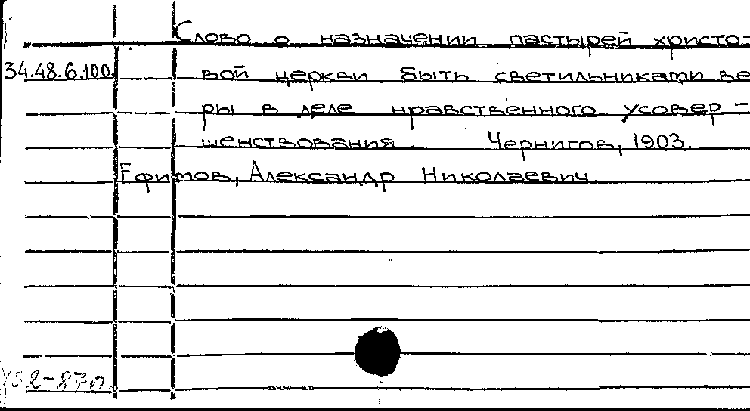 Слово о назначении пастырей христо-
34.48.6.100 вой церкви быть светильниками ве
ры в деле нравственного усовер-
шенствования. Чернигов, 1903.
Ефимов, Александр Николаевич